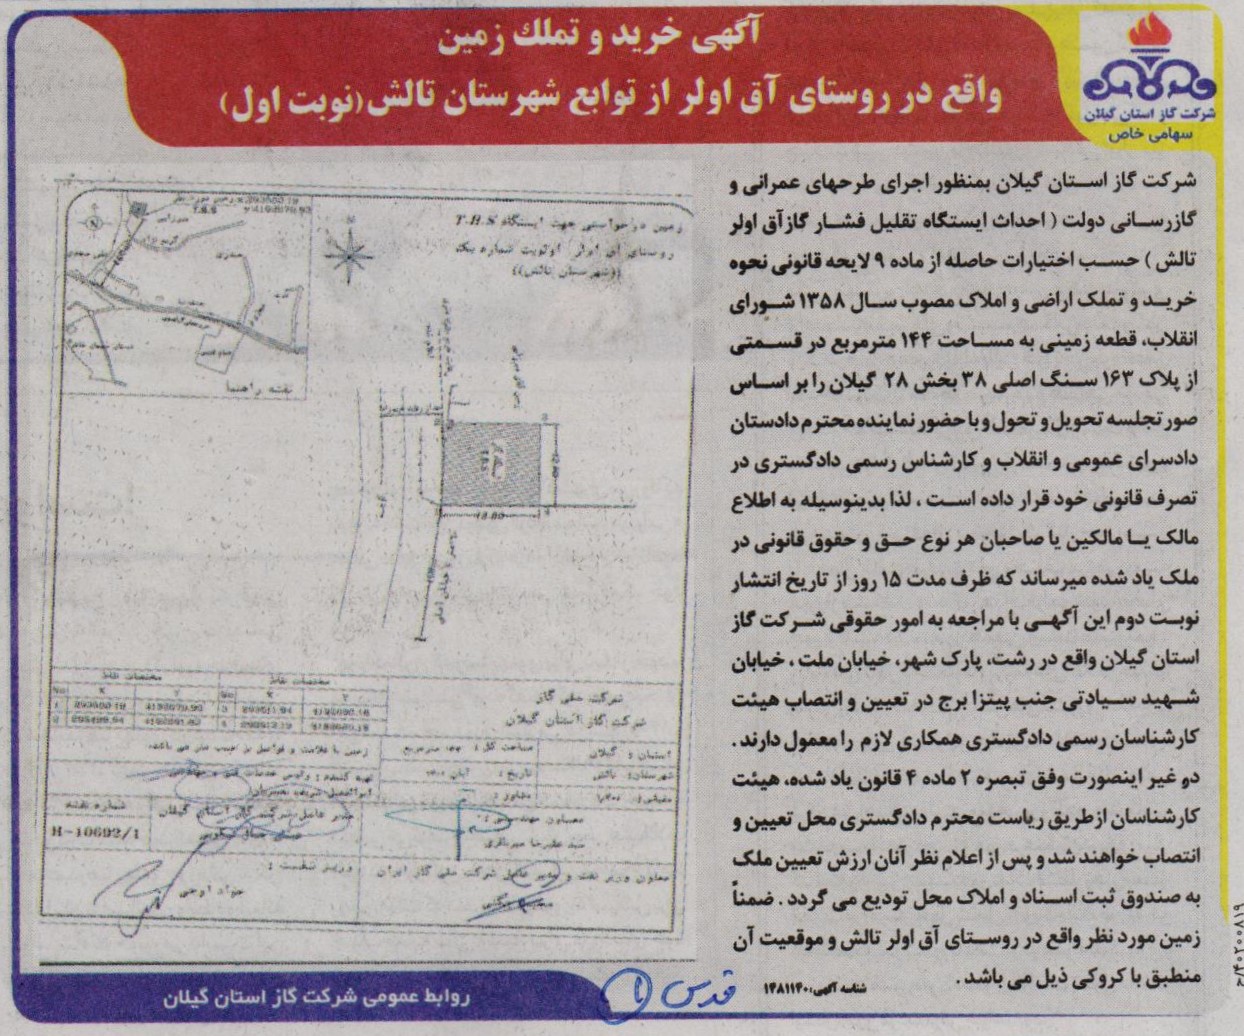 آگهی خرید و تملك زمین
واقع در روستای آق اولر از توابع شهرستان تالش(نوبت اول)
شرکت گاز استان گیلان
سهامی خاص
شرکت گاز اسـتان گیلان بمنظور اجرای طرحهای عمرانی و
گازرسـانی دولت ( احداث ایستگاه تقلیل فشـار گازآق اولر
تالش ) حسـب اختیارات حاصله از ماده ۹ لایحه قانونی نحوه
خریـد و تملک اراضی و املاک مصوب سـال ۱۳۵۸ شـورای
انقلاب، قطعه زمینی به مسـاحت ۱۴۴ مترمربع در قسـمتی
از پلاک ۱۶۳ سـنگ اصلی ۳۸ بخش ۲۸ گیلان را بر اسـاس
صورتجلسه تحویل و تحول و با حضور نماینده محترم دادستان
دادسرای عمومی و انقلاب و کارشناس رسمی دادگستری در
تصرف قانونی خود قرار داده اسـت ، لذا بدینوسیله به اطلاع
مالک یـا مالکین یا صاحبان هر نوع حـق و حقوق قانونی در
ملک یاد شده میرساند که ظرف مدت ۱۵ روز از تاریخ انتشار
نوبـت دوم این آگهـی با مراجعه به امور حقوقی شـرکت گاز
استان گیلان واقع در رشت، پارک شهر، خیابان ملت ، خیابان
شـهید سـیادتی جنب پیتزا برج در تعیین و انتصاب هیئت
کارشناسان رسمی دادگستری همکاری لازم را معمول دارند .
در غیر اینصورت وفق تبصره ۲ ماده ۴ قانون یاد شده، هیئت
کارشناسان ازطریق ریاست محترم دادگستری محل تعیین و
انتصاب خواهند شد و پس از اعلام نظر آنان ارزش تعیین ملک
به صندوق ثبت اسـناد و املاک محل تودیع می گردد . ضمناً
زمین مورد نظر واقع در روسـتای آق اولر تالش و موقعیت آن
منطبق با کروکی ذیل می باشد .
شناسه آگهی: ۱۴۸۱۱۴۰
زمین درخواستی جهت ایستگاه T.B.S
روستای آق اولر اولویت شماره یک
((شهرستان تالش))
نقشه راهنما
مختصات نقاط
مختصات نقاط
شرکت ملی گاز
شرکت گاز استان گیلان
استان : گیلان
مساحت کل :
شهرستان: تالش
تاریخ :
آبان ۱۴۰۰
مقیاس :
شماره نقشه
H-10692/1
مدیر عامل شرکت گاز استان گیلان
سید علیرضا میرباقری
معاون وزیر نفت و مدیر عامل شرکت ملی گاز ایران
وزیر نفت :
جواد اوجی
قدس ۱
روابط عمومی شرکت گاز استان گیلان
۴۰۲۰۰۸۱۹/ح